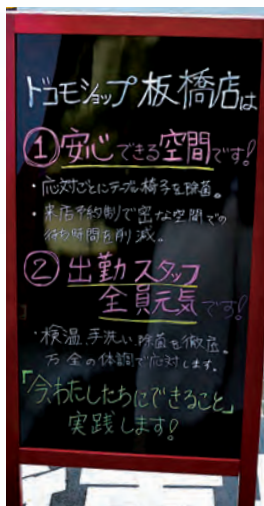 ドコモショップ板橋店は
①安心できる空間です!
・応対ごとにテーブル椅子を除菌。
・来店予約制で密な空間での
待ち時間を削減。
②出勤スタッフ
全員元気です!
・検温、手洗い、除菌を徹底。
万全の体調で応対します。
「今、わたしたちにできること」
実践します!